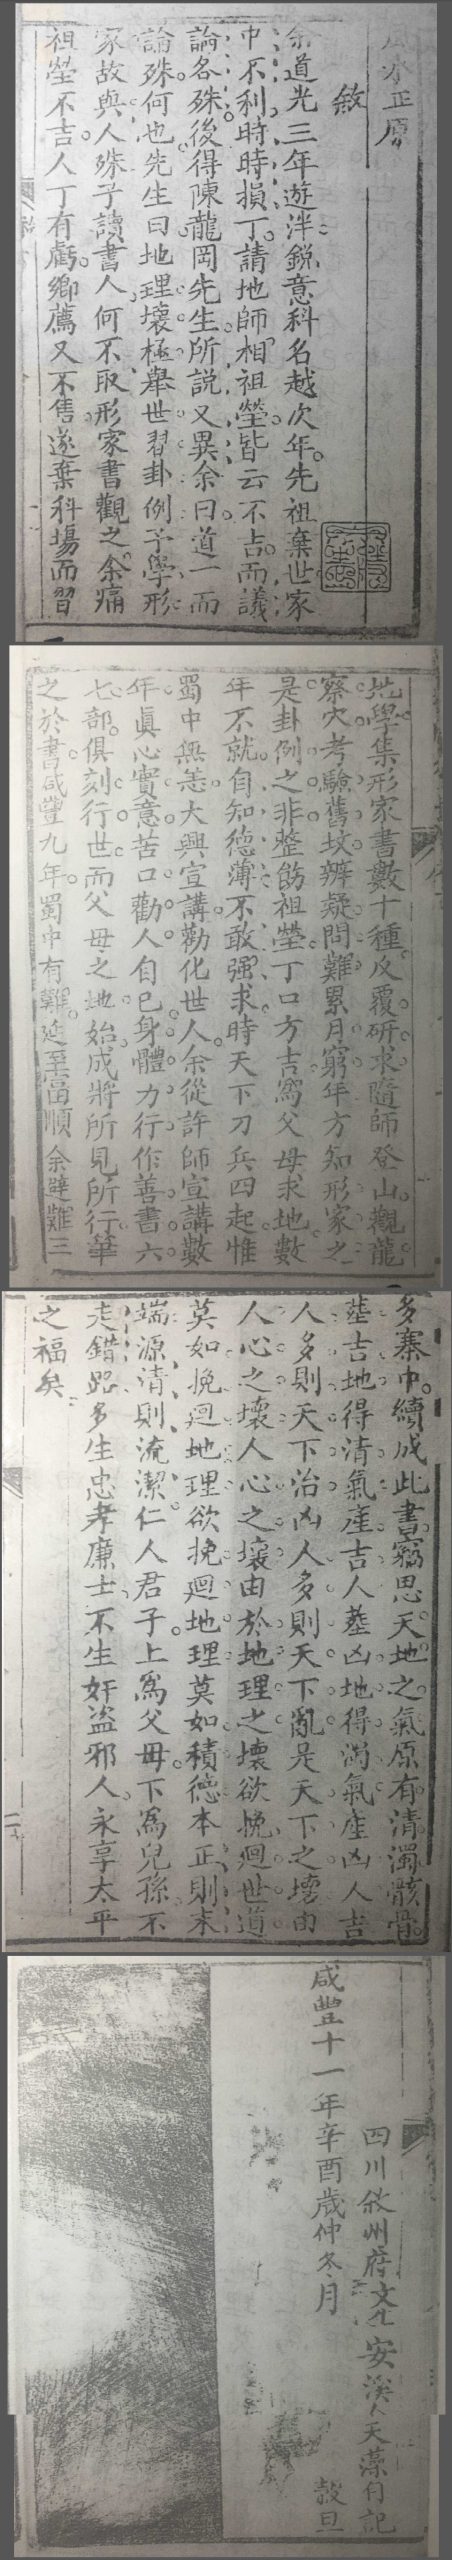 風水正原
敘
余道光三年遊泮鋭意科名越次年先祖棄世家
中不利時時損丁請地師相祖塋皆云不吉而議
論各殊後得陳龍岡先生所説又異余曰道一而
論殊何也先生曰地理壞極舉世習卦例予學形
家故與人殊子讀書人何不取形家書觀之余痛
祖塋不吉人丁有虧鄉薦又不售遂棄科場而習
地學集形家書數十種反覆研求隨師登山觀龍
察穴考驗舊墳辨疑問難累月窮年方知形家之
是卦例之非整飭祖塋丁口方吉爲父母求地數
年不就自知德薄不敢强求時天下刀兵四起惟
蜀中無恙大興宣講勸化世人余從許師宣講數
年眞心實意苦口勸人自己身體力行作善書六
七部俱刻行世而父母之地始成將所見所行筆
之於書咸豐九年蜀中有難延至富順余避難三
多寨中續成此書竊思天地之氣原有清濁骸骨
塟吉地得清氣產吉人塟凶地得濁氣產凶人吉
人多則天下治凶人多則天下亂是天下之壞由
人心之壞人心之壞由於地理之壞欲挽廻世道
莫如挽廻地理欲挽廻地理莫如積德本正則末
端源清則流潔仁人君子上爲父母下爲兒孫不
走錯路多生忠孝廉士不生奸盜邪人永享太平
之福矣
四川敘州府文生安溪人天藻自記
咸豐十一年辛酉歲仲冬月　　　穀旦